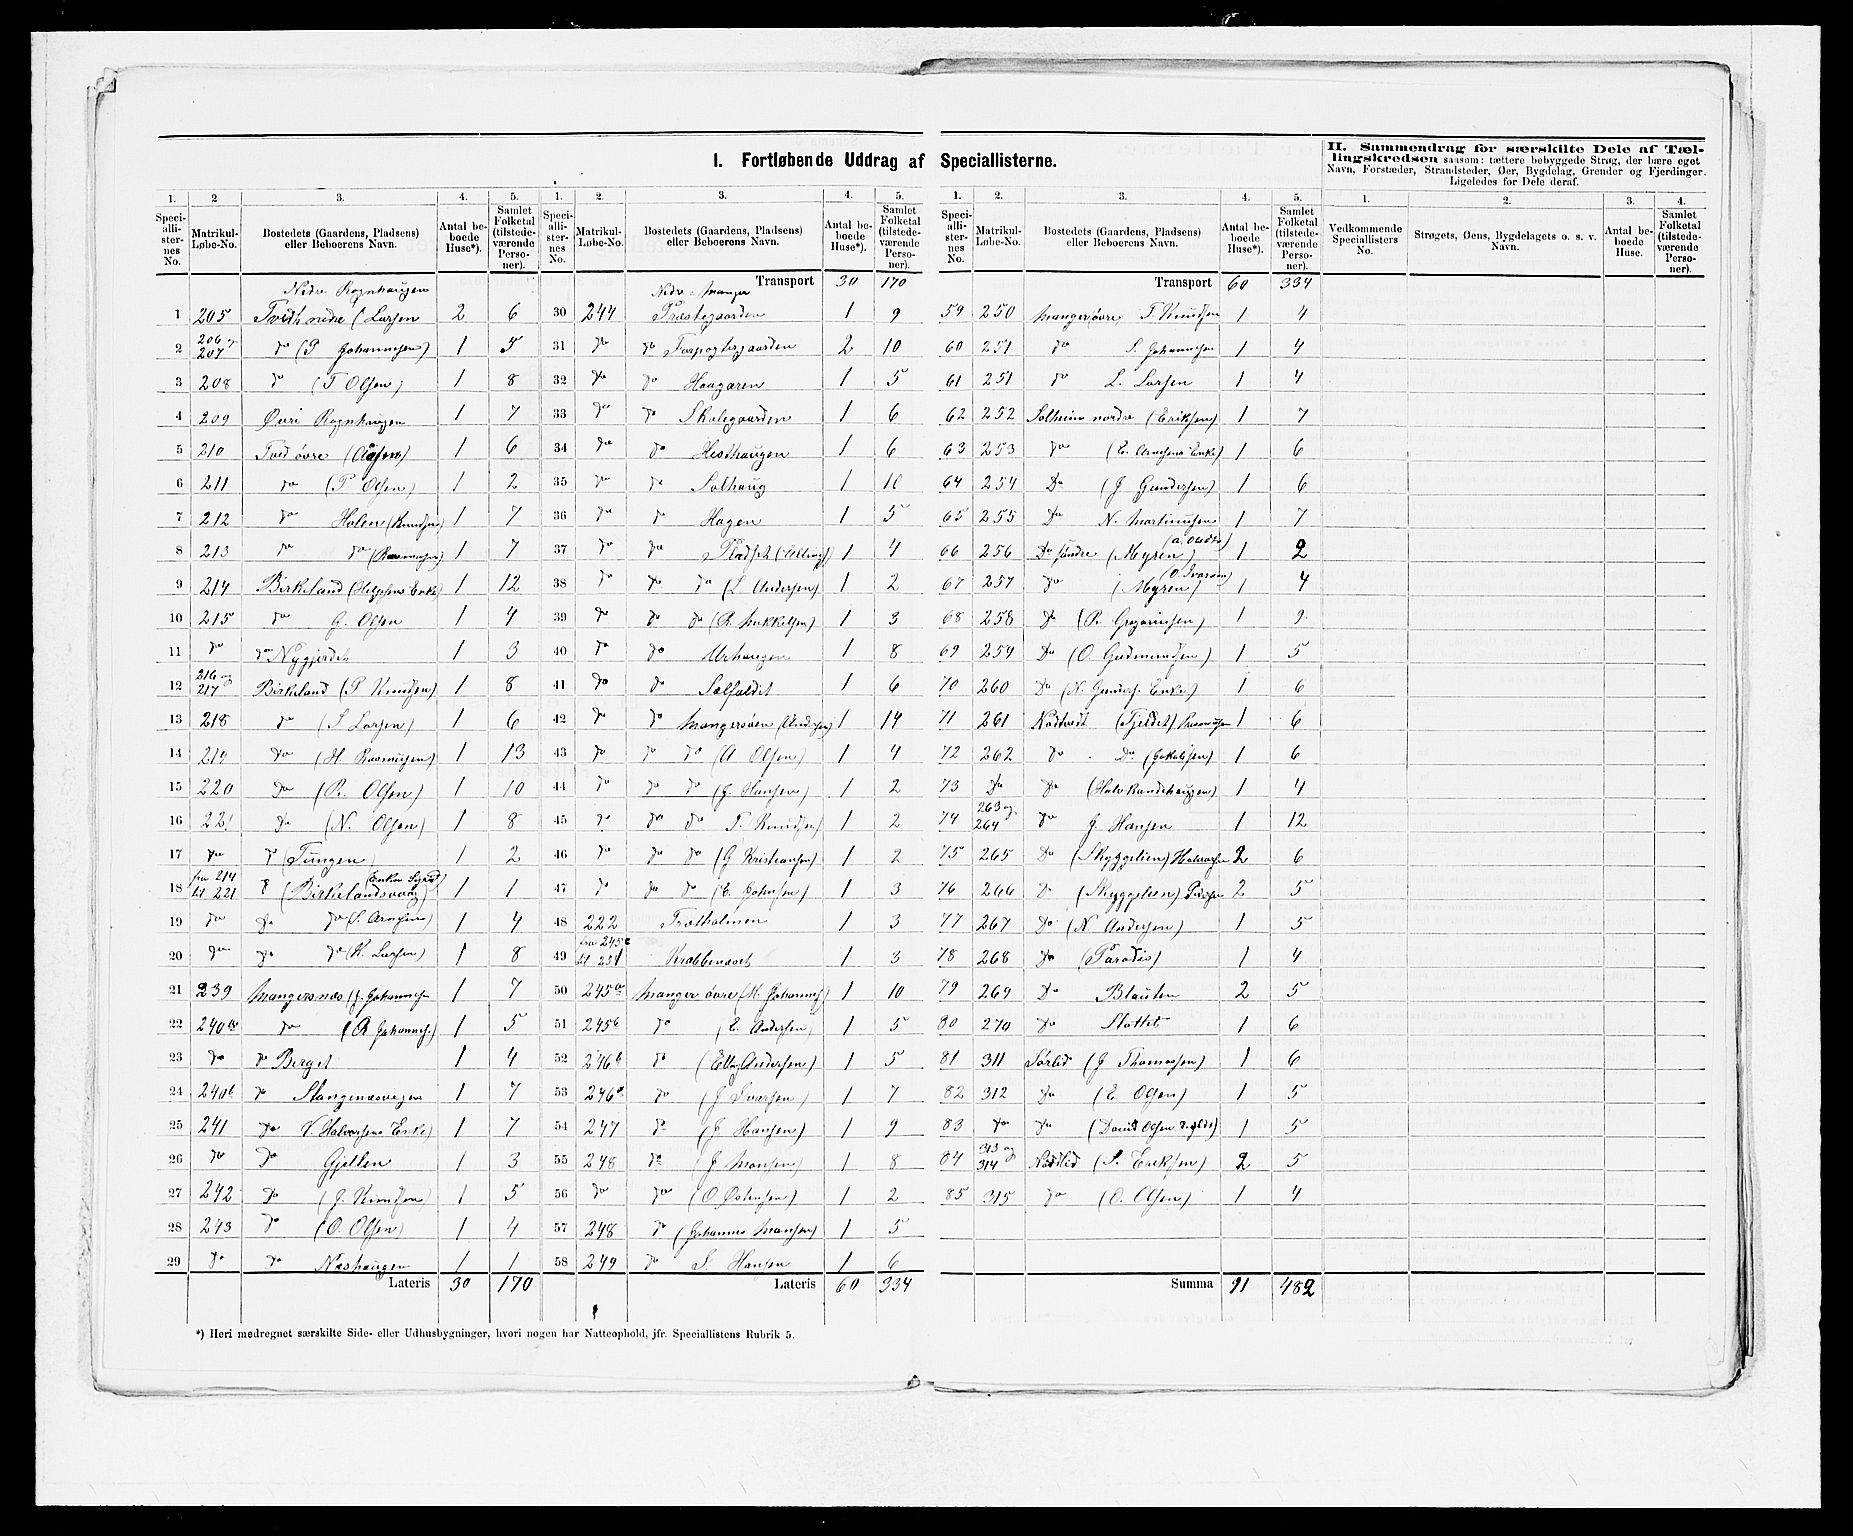 I. Fortløbende Uddrag af Speciallisterne.
II. Sammendrag for særskilte Dele af Tæl-
lingskredsen saasom: tættere bebyggede Strøg, der bære eget
Navn, Forstæder, Strandsteder, Øer, Bygdelag, Grender og Fjerdinger.
Ligeledes for Dele deraf.
1. 2 3. 4. 5.
Speciallisternes No. Matrikul-Løbe-No. Bostedets (Gaardens, Pladsens) eller Beboerens Navn. Antal beboede Huse*). Samlet Folketal (tilstedeværende Personer).
Nedre Rognhaugen
1 205 Tvedt nedre (Larsen 2 6
2 206 og 207 do (P Johannesen) 1 5
3 208 do (T Olsen) 1 8
4 209 Øvri Rognhaugen 1 7
5 210 Tved øvre 1 6
6 211 do (P Olsen) 1 2
7 212 do Holen (Knudsen) 1 7
8 213 do do (Rasmusen) 1 7
9 214 Birkeland (Helgesens Enke) 1 12
10 215 do G. Olsen 1 4
11 do do Nygjerdet 1 3
12 216 og 217 Birkeland (P Knudsen) 1 8
13 218 do (S Larsen) 1 6
14 219 do (H. Rasmusen) 1 13
15 220 do (R. Olsen) 1 10
16 221 do (N. Olsen) 1 8
17 do do (Tungen) 1 2
18 fra 214 til 221 (Birkelandsvaag) 1 1
19 do do do (S. Arnesen) 1 4
20 do do do (K. Larsen) 1 8
21 239 Mangersnæs (J. Johannesen 1 7
22 240a do (R Johannes.) 1 5
23 do do Berget 1 4
24 240b do Stangenæsvigen 1 7
25 241 do V. Halvorsens Enke) 1 7
26 do do Gjellen 1 3
27 242 do (J. Knudsen) 1 5
28 243 do (O. Olsen) 1 4
29 do do Neshaugen 1 1
Lateris 30 170
1. 2. 3. 4. 5.
Speciallisternes No. Matrikul-Løbe-No. Bostedets (Gaardens, Pladsens) eller Beboerens Navn. Antal beboede Huse*). Samlet Folketal (tilstedeværende Personer).
Transport 30 170
Nedre Manger
30 244 Præstegaarden 1 9
31 do do Forpagtergaarden 2 10
32 do do Haugaren 1 5
33 do do Skolegaarden 1 6
34 do do Hesthaugen 1 6
35 do do Solhaug 1 10
36 do do Hagen 1 5
37 do do Pladset 1 4
38 do do do (L Andersen) 1 2
39 do do do (R. Mikkelsen) 1 3
40 do do Urhaugen 1 8
41 do do Solfaldet 1 6
42 do do Mangersøen (Andersen) 1 14
43 do do do (A Olsen) 1 4
44 do do do (J. Hansen) 1 2
45 do do do T. Knudsen) 1 2
46 do do do (G Kristiansen) 1 2
47 do do do (E. Johnsen) 1 3
48 222 Træthalmen 1 3
49 fra 245c til 251 Krabbenæset 1 3
50 245a Manger øvre (M. Johannes.) 1 10
51 245b do (E. Andersen) 1 5
52 246b do (Elling Andersen) 1 5
53 246a do (J Ivarsen) 1 7
54 247 do (J Hansen) 1 9
55 248 do (J Monsen) 1 8
56 do do (O Østensen) 1 2
57 248 do (Johannes Monsen) 1 5
58 249 do S. Hansen 1 6
Lateris 60 334
1. 2. 3. 4. 5.
Speciallisternes No. Matrikul-Løbe-No. Bostedets (Gaardens, Pladsens) eller Beboerens Navn. Antal beboede Huse*). Samlet Folketal (tilstedeværende Personer).
Transport 60 334
59 250 Manger øvre T. Knudsen 1 4
60 251 do S. Johannesen 1 4
61 251 do L. Larsen 1 4
62 252 Solheim nordre (Eriksen) 1 7
63 253 do (E. Arnesens Enke) 1 6
64 254 Do (J Gundersen) 1 6
65 255 Do N. Martinusen 1 7
66 256 Do søndre (Myren) 1 2
67 257 do (Myren) (O. Ivarsen) 1 4
68 258 do (R. Gregoriusen) 1 9
69 259 Do (O. Gudmundsen) 1 5
70 260 Do (N. Gunders. Enke) 1 6
71 261 Nodtvedt (Fjeldet) Rasmusen 1 6
72 262 do Do (Jakobsen) 1 6
73 Do Do (Halv Randehaugen) 1 4
74 263 og 264 do J. Hansen 1 12
75 265 Do (Skyggelien) Halvorsen 2 6
76 266 do (Skyggelien) Pedersen 2 5
77 267 Do (N. Andersen) 1 5
78 268 Do (Paradis) 1 4
79 269 Do Blauten 2 5
80 270 Do Slottet 1 6
81 311 Sørlid (J Thomassen) 1 6
82 312 Do (E. Olsen) 1 5
83 do do (David Olsen 1 5
84 313 og 314 Nordlid (S. Eriksen) 2 5
85 315 do (O. Olsen) 1 4
Summa 91 482
1. 2. 3. 4.
Vedkommende Speciallisters No. Strøgets, Øens, Bygdelagets o. s. v. Navn. Antal beboede Huse. Samlet Folketal (tilstedeværende Personer).
*) Heri medregnet særskilte Side- eller Udhusbygninger, hvori nogen har Natteophold, jfr. Speciallistens Rubrik 5.